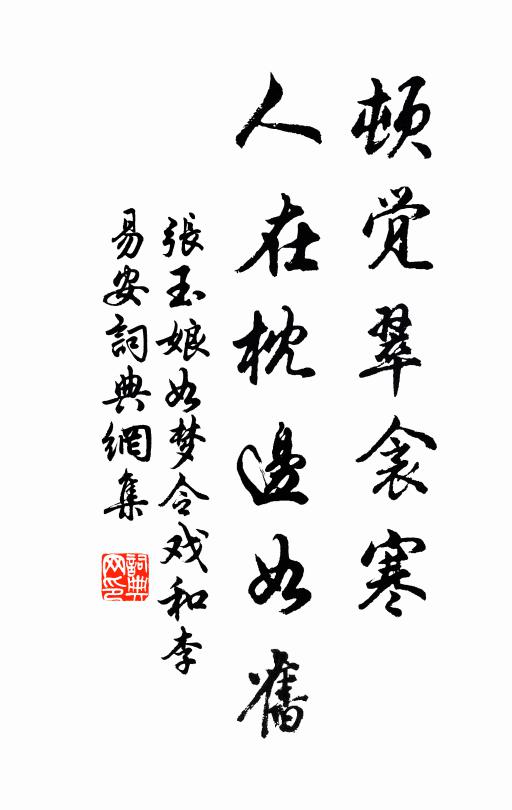 顿觉翠衾寒
人在枕邊如舊
張玉娘如梦令戏和李
易安詞典網集
詞典
网印